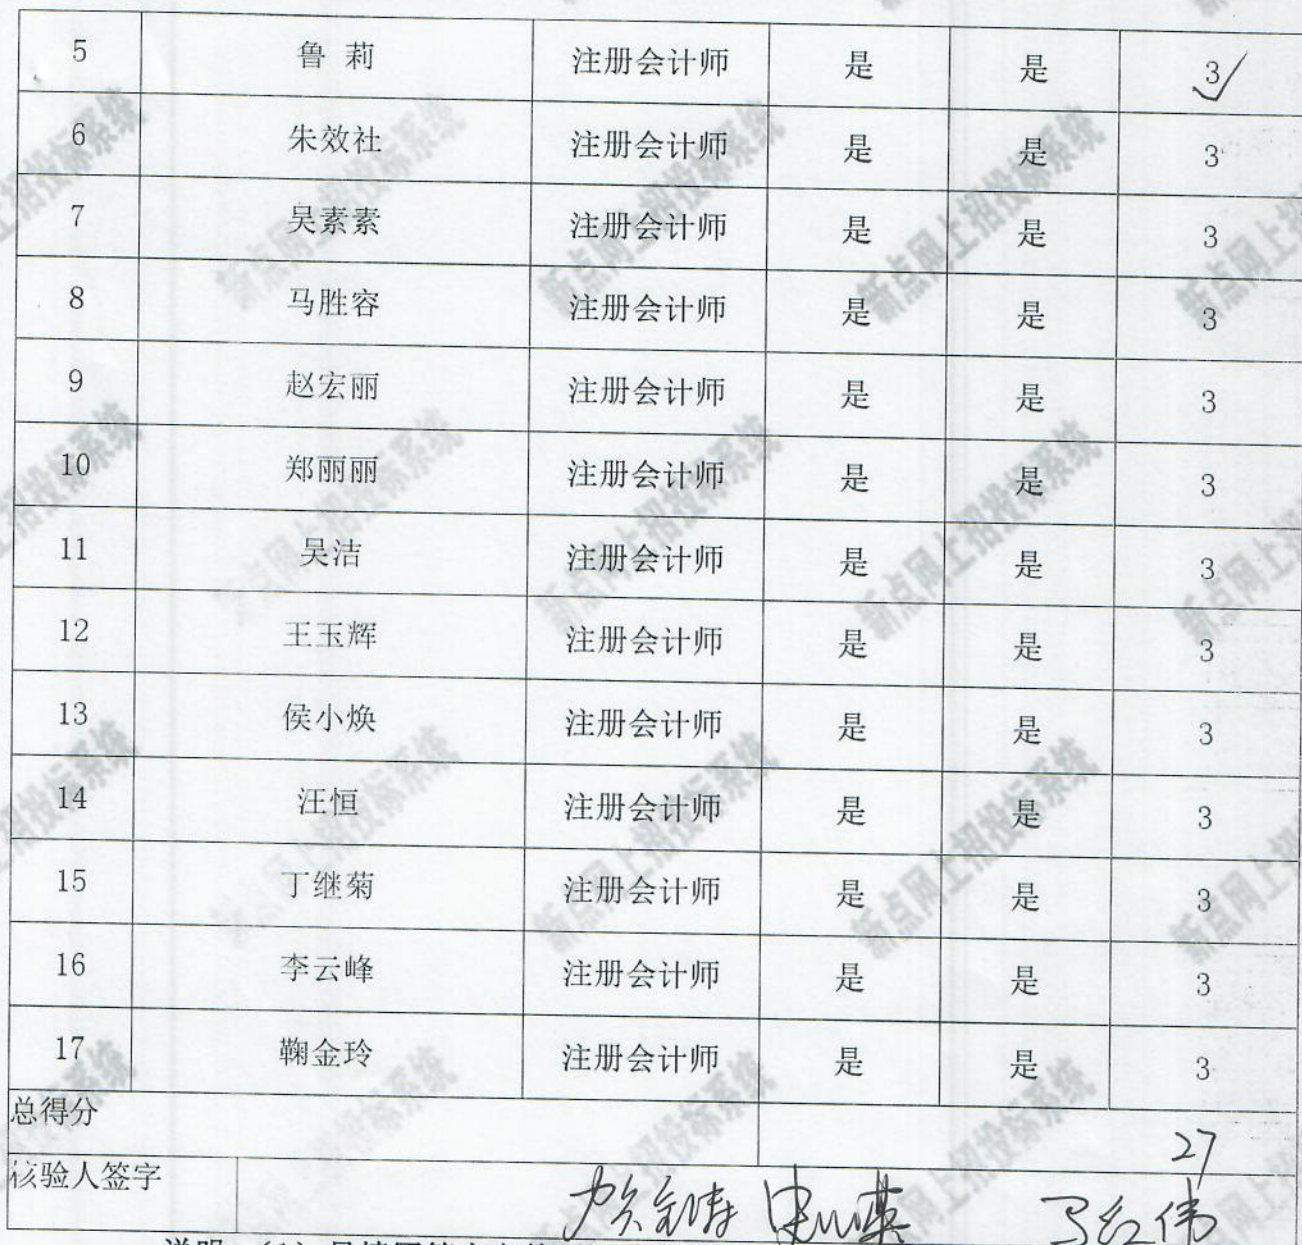 5 鲁 莉 注册会计师 是 是 3
6 朱效社 注册会计师 是 是 3
7 吴素素 注册会计师 是 是 3
8 马胜容 注册会计师 是 是 3
9 赵宏丽 注册会计师 是 是 3
10 郑丽丽 注册会计师 是 是 3
11 吴洁 注册会计师 是 是 3
12 王玉辉 注册会计师 是 是 3
13 侯小焕 注册会计师 是 是 3
14 汪恒 注册会计师 是 是 3
15 丁继菊 注册会计师 是 是 3
16 李云峰 注册会计师 是 是 3
17 鞠金玲 注册会计师 是 是 3
总得分 27
核验人签字 马红伟
新点网上招投标系统